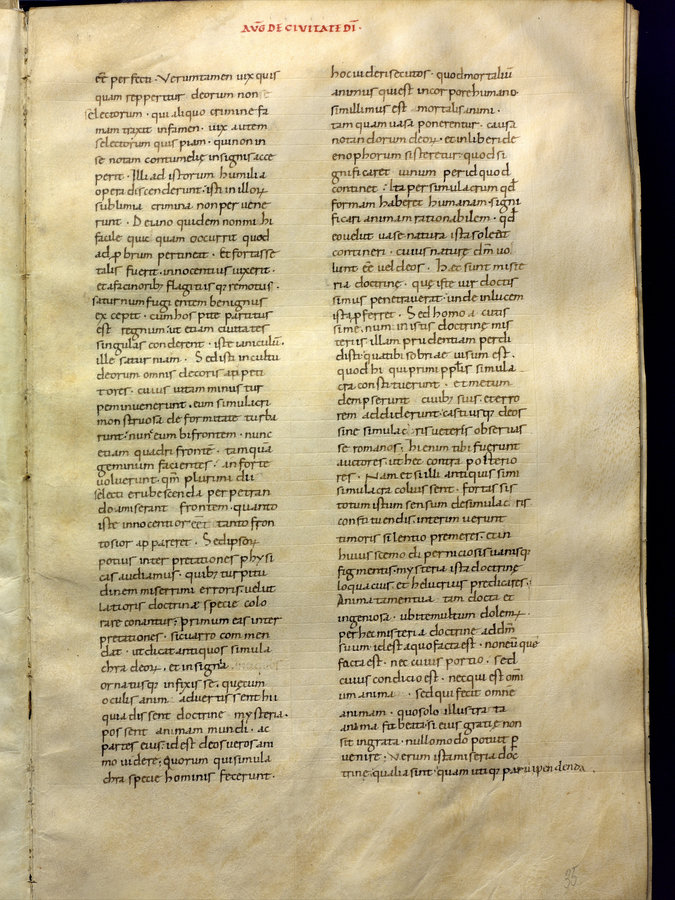 AUG̅ DE CIUITATE DI̅.
ee̅t perfecti. Veruntamen uix quis
quam repperitur deorum non s
selectorum. qui aliquo crimine fa
mam traxit infamem. uix autem
selectorum quispiam. qui non in
se notam contumelię insignis acce
perit. Illi ad istorum humilia
opera discenderunt. isti in illorꝝ
sublimia crimina non per uene
runt. De iano quidem non mi hi
facile quic quam occurrit quod
ad ꝓbrum pertineat. Et fortasse
talis fuerit. innocentius uixerit.
et a facinorib; flagitiis q; remotius.
saturnum fugi entem benignus
ex cepit. cum hos pite partitus
est regnum. ut etiam ciuitates
singulas conderent. iste ianiculu̅.
ille saturniam. Sed isti in cultu
deorum omnis decoris appeti
tores. cuius uitam minus tur
pem inuenerunt. eum simulacri
monstruosa de formitate turpa
runt. nunc eum bifrontem. nunc
etiam quadri fronte̅. tamqua̅
geminum facientes. an forte
uoluerunt. qm̅ plurimi dii
selecti erubescenda per petran
do amiserant frontem. quanto
iste innocentior ee̅t tanto fron
tosior ap pareret. Sed ipsorꝝ
potius inter pretationes physi
cas audiamus. quib; turpitu
dinem miserrimi erroris. uelut
altioris doctrinę specie colo
rare conantur. primum eas inter
pretationes. sic uarro com men
dat. ut dicat antiquos simula
chra deorꝝ. et insignia
ornatusq; infixisse. quę cum
oculis anim aduertissent hii
qui adissent doctrine mysteria.
possent animam mundi. ac
partes eius. id est deos ueros ani
mo uidere. quorum qui simula
chra specie hominis fecerunt.
hoc uideri secutos. quod mortaliu̅
animus qui est in cor pore humano.
simillimus est mortalis animi.
tam quam uasa ponerentur. causa
notan dorum deorꝝ. et in liberi de
enophorum sisteretur. quod si
gnificaret uinum. per id quod
continet. Ita per simulacrum qd̅
formam haberet humanam. signi
ficari animam rationabilem. qd̅
eo uelut uase natura ista soleat
contineri. cuius naturę dm̅ uo
lunt ee̅ uel deos. Hęc sunt miste
ria doctrinę. quę iste uir doctis
simus penetrauerat. unde in lucem
ista ꝓferret. Sed homo a cutis
sime. num in istis doctrinę mis
teriis illam prudentiam perdi
disti. qua tibi sobriae uisum est.
quod hi qui primi pplis simula
cra constituerunt. et metum
dempserunt ciuib; suis. et erro
rem addiderunt. castiusq; deos
sine simulacris ueteris obseruas
se romanos. hi enim tibi fuerunt
auctores. ut hec contra posterio
res. Nam et si illi antiquissimi
simulacra coluissent. fortassis
totum istum sensum de simulacris
constituendis. interim uerunt
timoris silentio premeres. et in
huiuscemodi perniciosis uanisq;
figmentis. mysteria ista doctrinę
loquacius et helucrius predicares.
Anima tamen tua tam docta et
ingeniosa. ubi te multum dolem.
per hec misteria doctrine ad dm̅
suum id est a quo facta est. non cu̅ quo
facta est. nec cuius portio. sed
cuius condicio est. nec qui est om̅i
um anima. sed qui fecit omne
animam. quo solo illustra ta
anima fit beata. si eius gratię non
sit ingrata. nullo modo potuit ꝑ
uenire. Verum ista misteria doc
trinę qualia sint. quam utiq; paruipendenda.
35